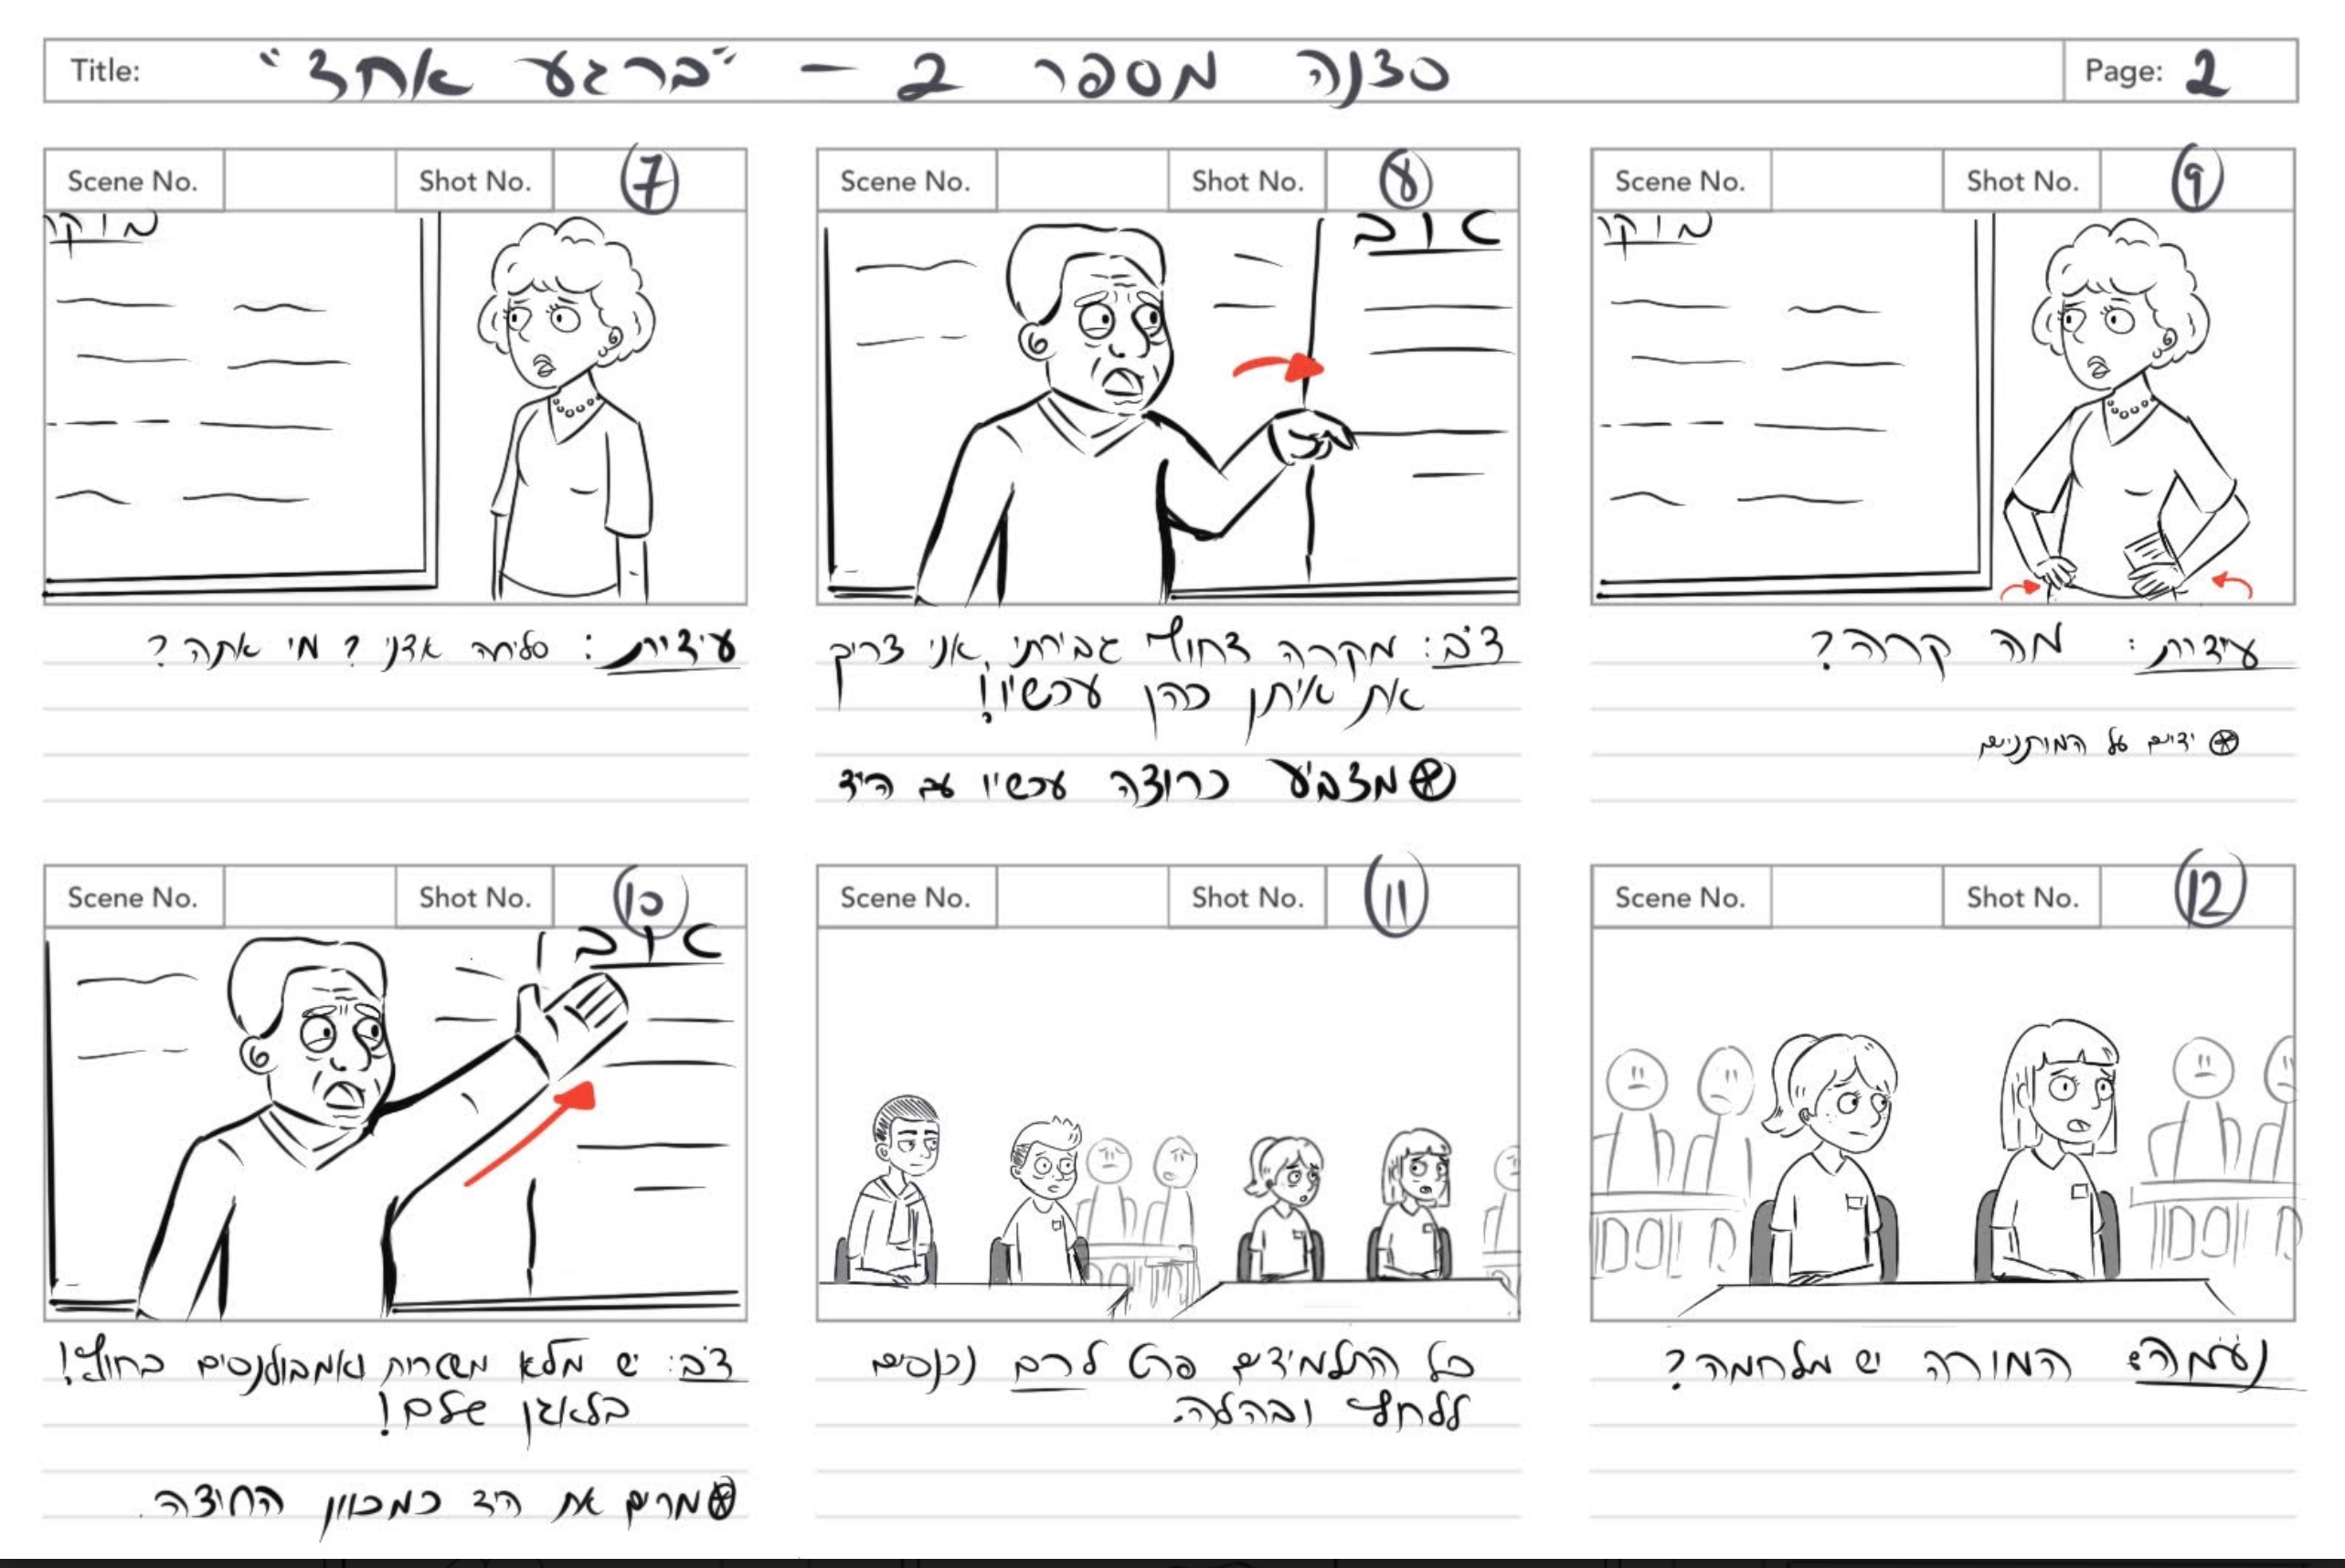 Title: סצנה מספר 2 - "ברגע אחד"
Page: 2
Scene No. Shot No. 7
מוקו
עידית: סליחה אדני? מי אתה?
Scene No. Shot No. 8
אוב
ד"ב: מקרה דחוף גבירתי, אני צריך
את איתן כהן עכשיו!
מצביע כרוצה עכשיו עם היד
Scene No. Shot No. 9
מוקו
עידית: מה קרה?
ידיים על המותניים
Scene No. Shot No. 10
אוב
ד"ב: יש מלא משטרות ואמבולנסים בחוץ!
בלאגן שלם!
מרים את היד כמכוון החוצה.
Scene No. Shot No. 11
כל התלמידים פרט לרם נכנסים
ללחץ ובהלה.
Scene No. Shot No. 12
נעמה: המורה יש מלחמה?